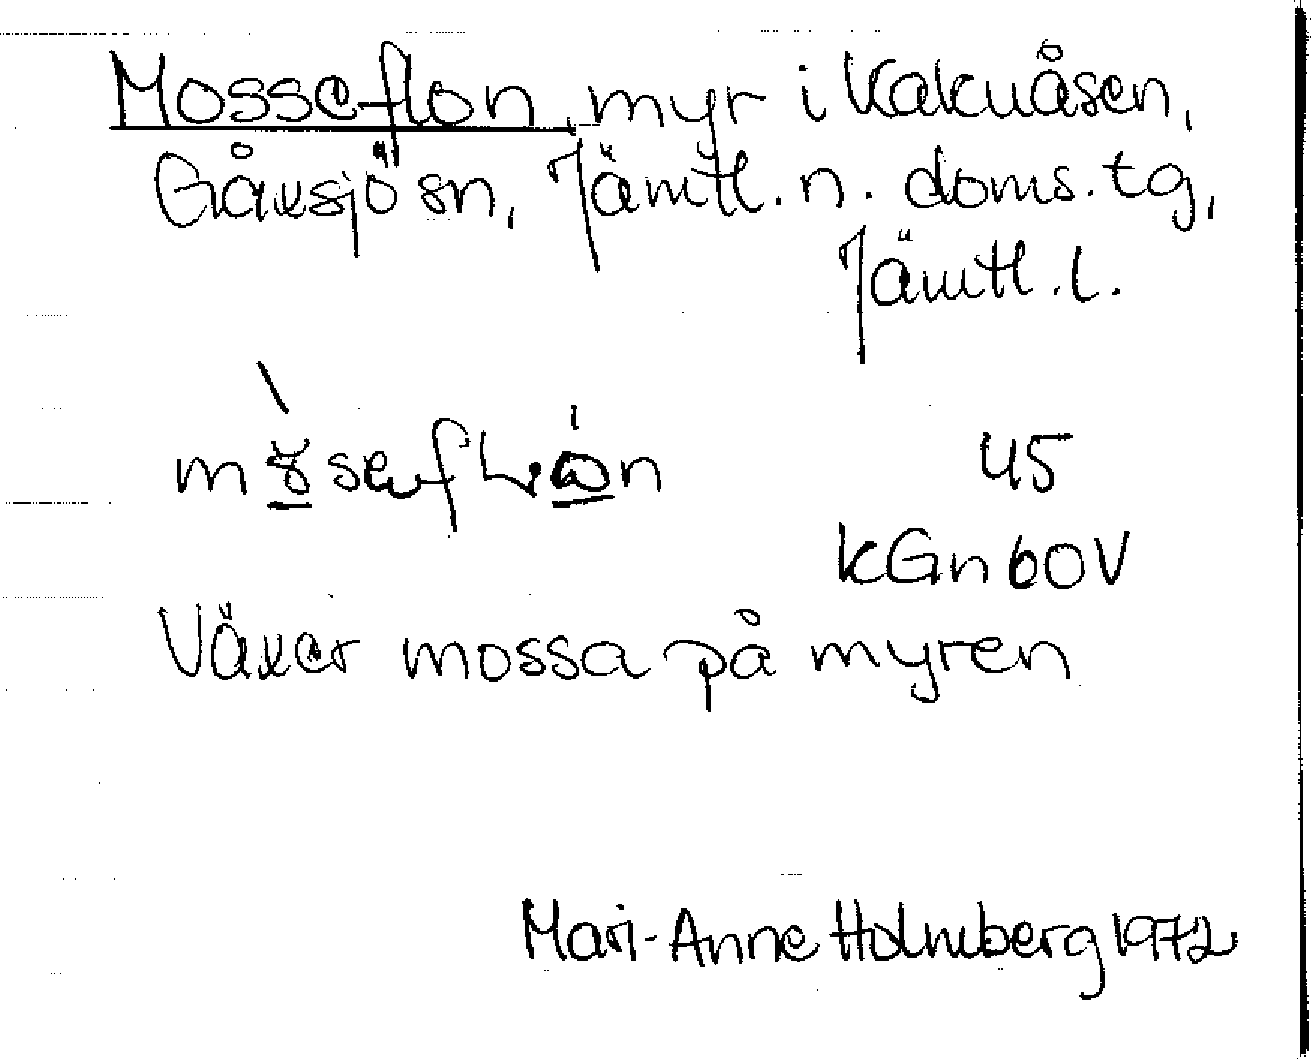 Mosseflon, myr i Kakuåsen,
Gåxsjö sn, Jämtl. n. doms. tg,
Jämtl. l.
45
kGn60V
Växer mossa på myren
Mari-Anne Holmberg 1972